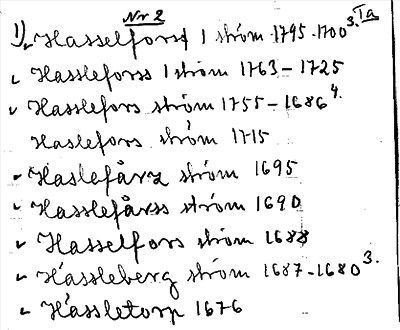 Nr 2
Ia
1) Hasselforss 1 ström 1795-1700 3.
Hassleforss 1 ström 1763-1725
Hasslefors ström 1755-1686 4.
Haslefors ström 1715
Haslefårz ström 1695
Hasslefårss ström 1690
Hasselfors ström 1688
Hässleberg ström 1687-1680 3.
Hässletorp 1676